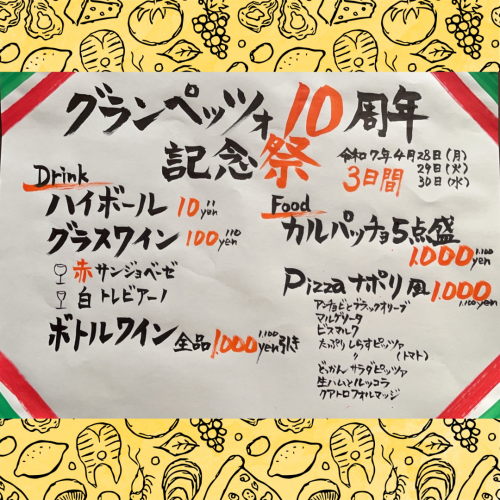 グランペッツォ10周年
記念祭
令和7年4月28日(月)
29日(火)
30日(水)
3日間
Drink
ハイボール 10yen
11
グラスワイン 100yen
110
赤 サンジョベーゼ
白 トレビアーノ
ボトルワイン 全品1,000yen引き
1,100
Food
カルパッチョ5点盛
1,000yen
1,100
Pizza ナポリ風 1,000
1,100yen
アンチョビとブラックオリーブ
マルゲリータ
ビスマルク
たっぷりしらすピッツァ
〃 (トマト)
どっかんサラダピッツァ
生ハムとルッコラ
クアトロフォルマッジ